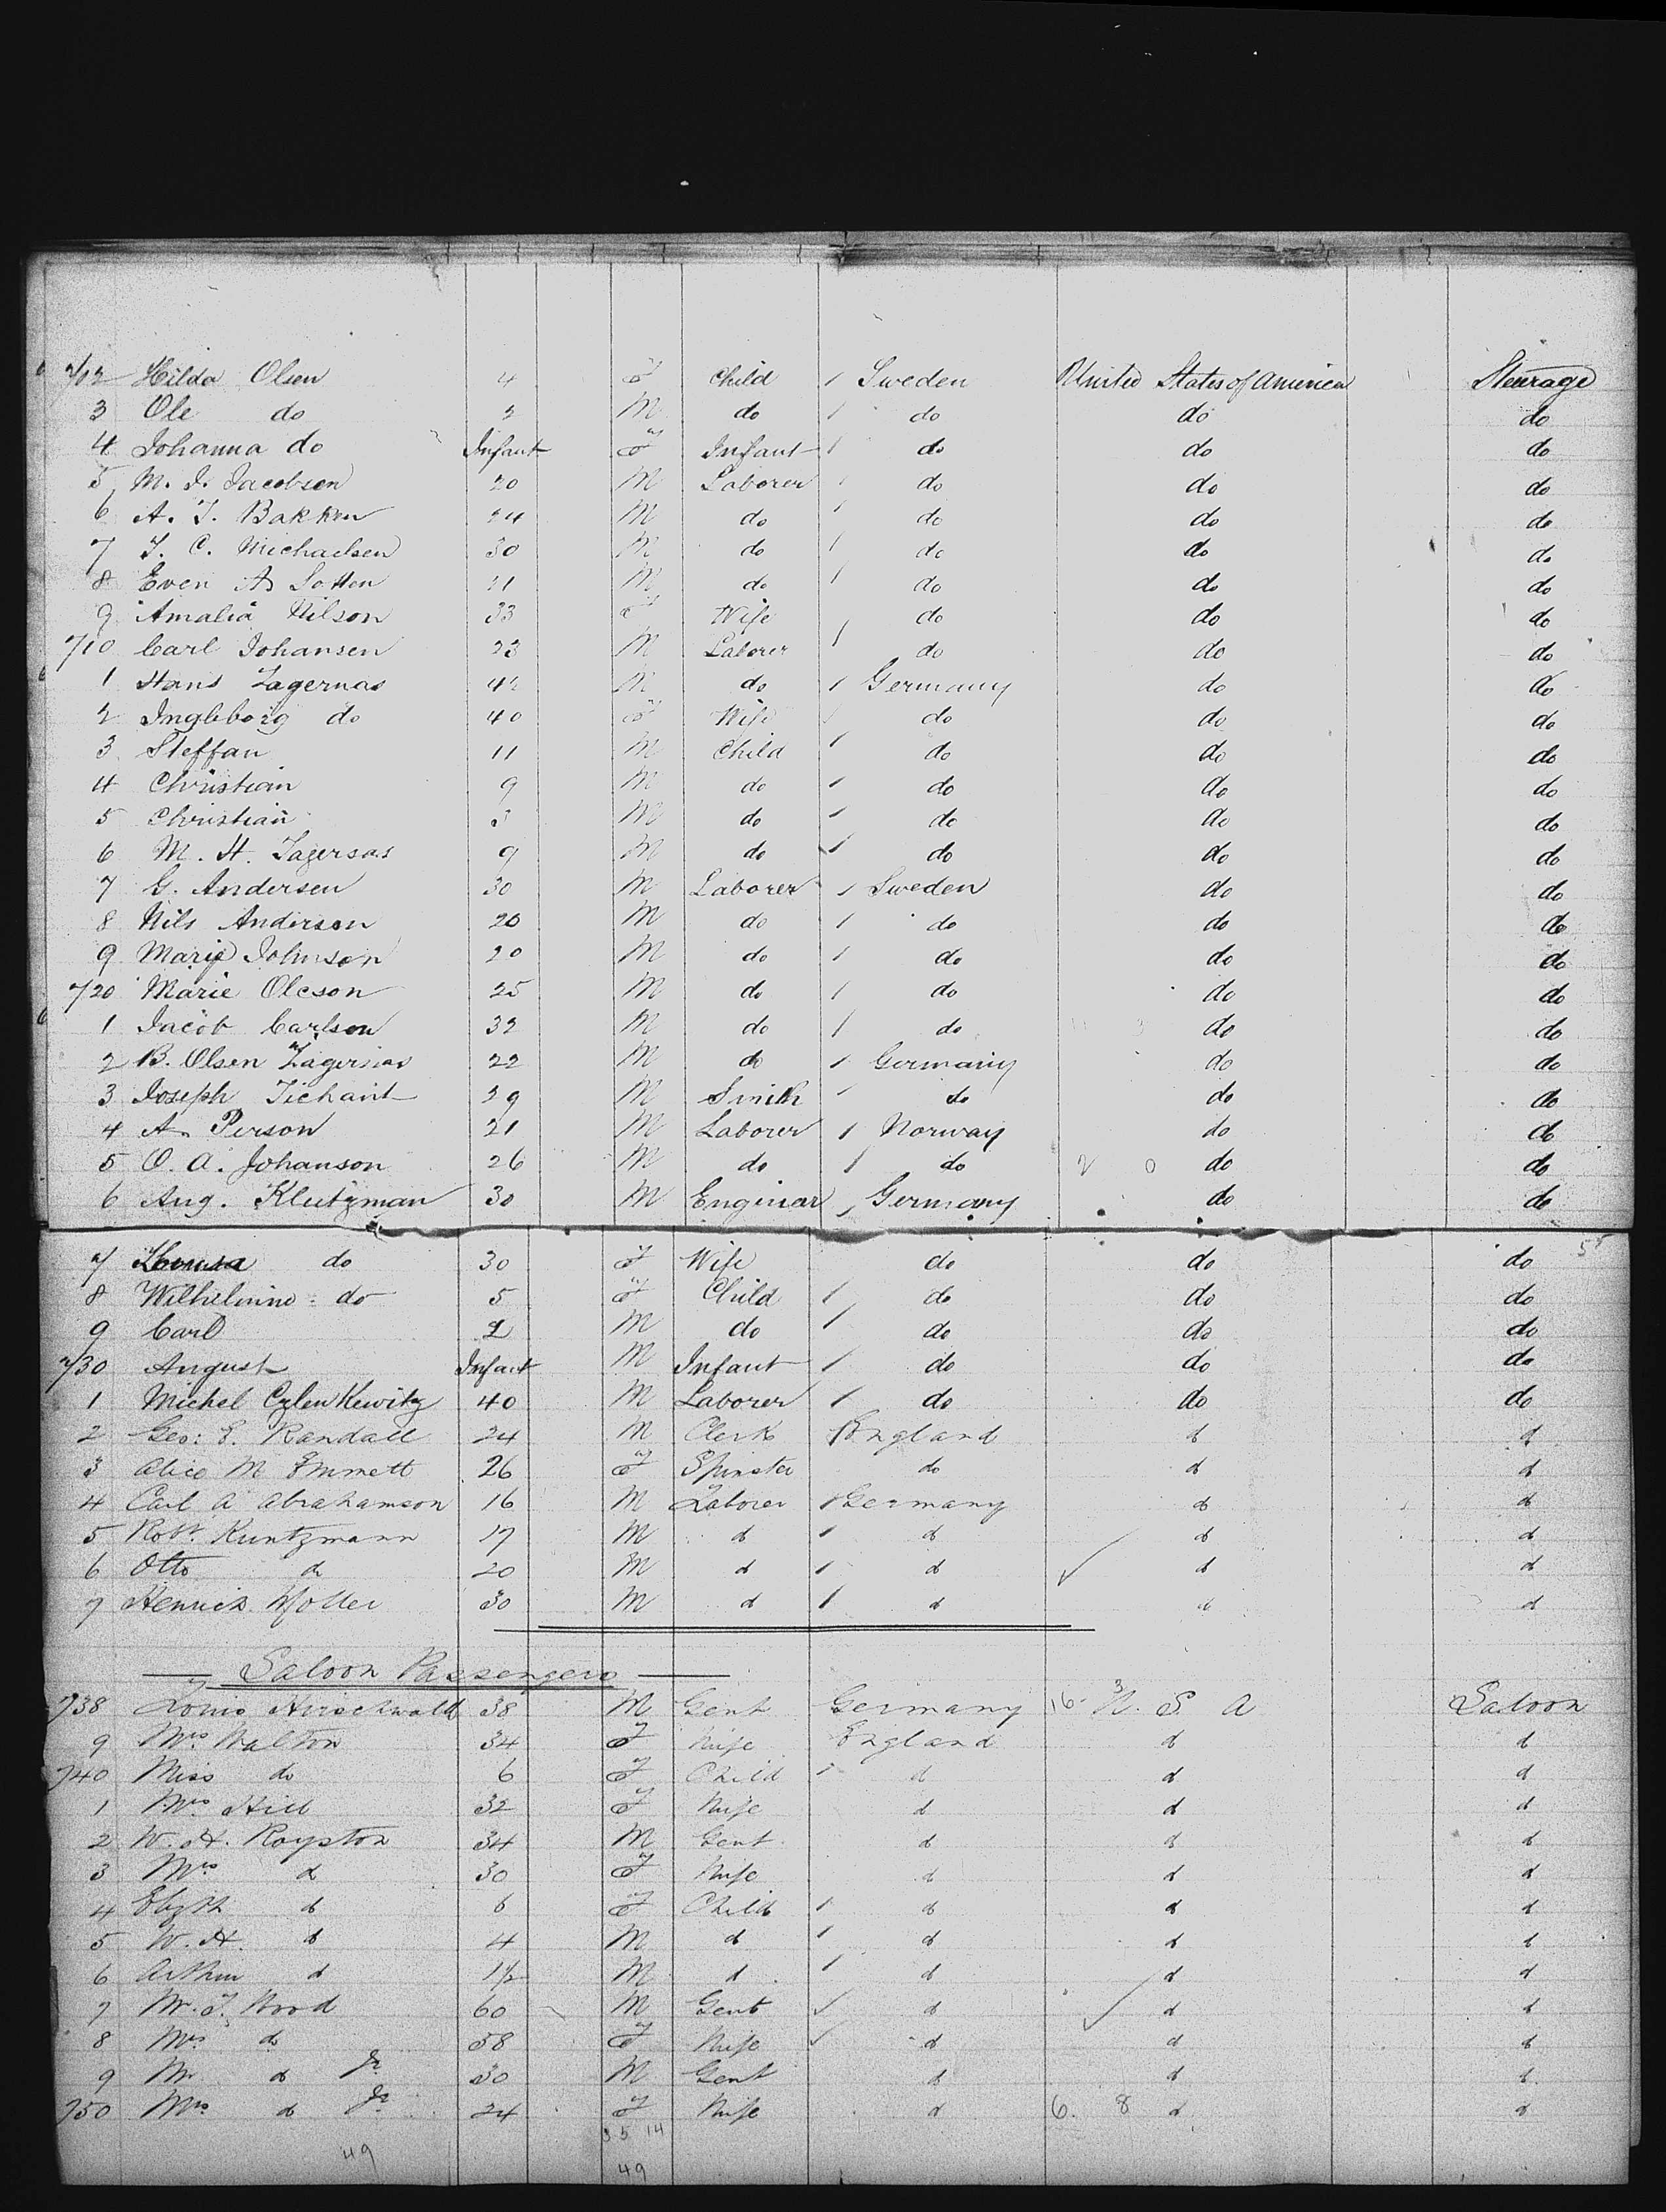 702 Hilda Olsen 4 F Child 1 Sweden United States of America Steerage
3 Ole do 2 M do 1 do do do
4 Johanna do Infant F Infant 1 do do do
5 M. J. Jacobsen 20 M Laborer do do do
6 A. J. Bakken 24 M do 1 do do do
7 J. C. Michaelsen 30 M do 1 do do do
8 Even A 21 M do 1 do do do
9 Amalia Nilson 33 F Wife do do do
710 Carl Johansen 23 M Laborer 1 do do do
1 Hans Zagernas 42 M do 1 Germany do do
2 Ingleborg do 40 F Wife do do do
3 Steffan 11 M Child 1 do do do
4 Christian 9 M do 1 do do do
5 Christian M do 1 do do do
6 M. H. Zagersas 9 M do 1 do do do
7 G. Andersen 30 M Laborer 1 Sweden do do
8 Nils Anderson 20 M do 1 do do do
9 Marie Johnson 20 M do 1 do do do
720 Marie Oleson 25 M do 1 do do do
1 Jacob Carlson 32 M do 1 do do do
2 B. Olsen Zagernas 22 M do 1 Germany do do
3 Joseph Tichant 29 M Smith 1 do do do
4 A. Person 21 M Laborer 1 Norway do do
5 O. A. Johanson 26 M do 1 do 2 0 do do
6 Aug. Klutzman 30 M Enginear Germany do do
7 Lousa do 30 F Wife do do do 55
8 Wilhelmine do 5 F Child 1 do do do
9 Carl 2 M do 1 do do do
730 August Infant M Infant 1 do do do
1 Michel Cylenkewitz 40 M Laborer 1 do do do
2 Geo: E. Randall 24 M Clerk 1 England d d
3 Alice M Emmett 26 F Spinster do d d
4 Carl A Abrahamson 16 M Laborer 1 Germany d d
5 Robt. Kuntzmann 17 M d 1 d d d
6 Otto d 20 M d 1 d d d
7 Henrick Moller 30 M d 1 d d d
Saloon Passengers
738 Louis Hirschwald 38 M Gent Germany 16 3 U. S. A Saloon
9 Mrs Walton 34 F Wife England d d
740 Miss do 6 F Child 1 d d d
1 Mrs Hill 32 F Wife d d d
2 W. H. Royston 34 M Gent d d d
3 Mrs d 30 F Wife d d d
4 Elizth d 6 F Child 1 d d d
5 W. H. d 4 M d 1 d d d
6 Arthur d 1½ M d 1 d d d
7 Mr. J. Wood 60 M Gent d d d
8 Mrs do 58 F Wife d d d
9 Mr d Jr 30 M Gent d d d
750 Mrs d Jr 24 F Wife d 6. 8 d d
35 14
49
49